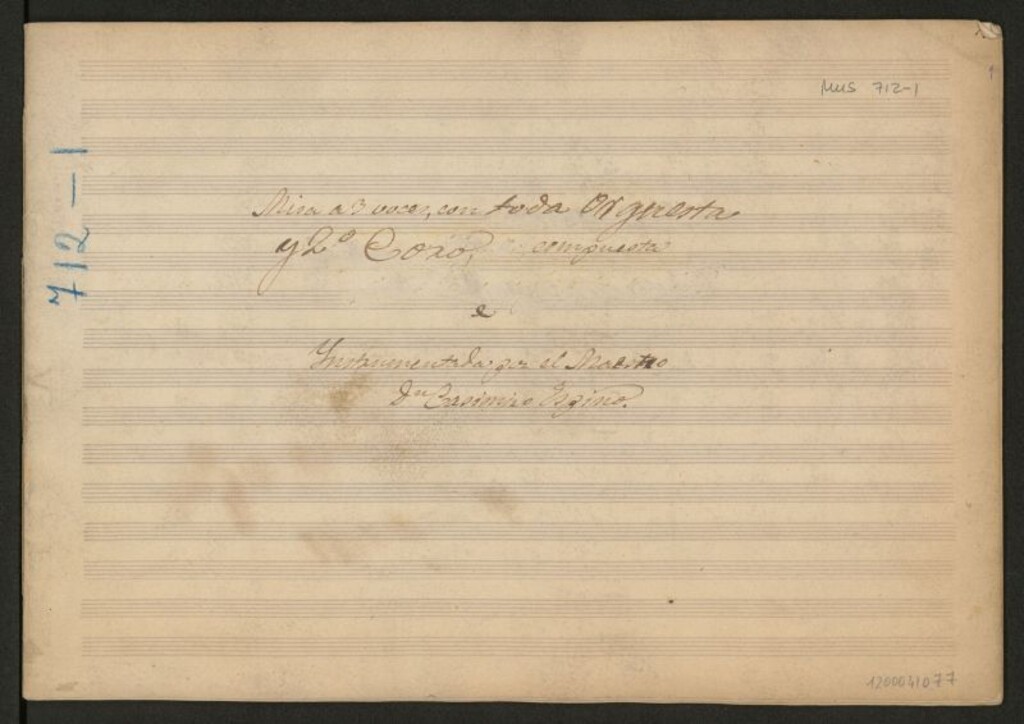 Mus 712-1
712-1
Misa a 3 voces, con toda Orquesta
y 2º Coro, compuesta
e
Instrumentada por el Maestro
Dn Casimiro Espino.
1200041077